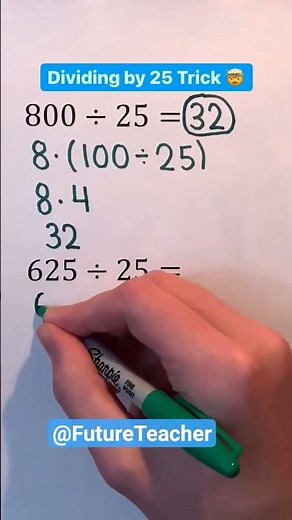 Dividing by 25 Trick 🤯
800 ÷ 25 = 32
8·(100÷25)
8·4
32
625 ÷ 25 =
6
Sharpie
FINE
POINT
@FutureTeacher